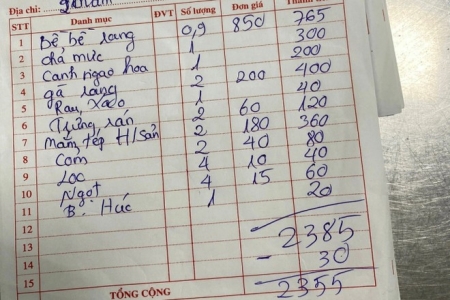 Địa chỉ:
STT Danh mục ĐVT Số lượng Đơn giá
1 Bề bề rang 0,9 850 765
2 chả mực 1 300
3 Canh ngao hoa 1 200
4 gà rang 2 200 400
5 Rau xào 1 40
6 Trứng rán 2 60 120
7 Mắm tép H/Sản 2 180 360
8 Com 2 40 80
9 Loc 4 10 40
10 Ngọt 4 15 60
11 B. Húc 1 20
12
13 2385
14 - 30
15 2355
TỔNG CỘNG